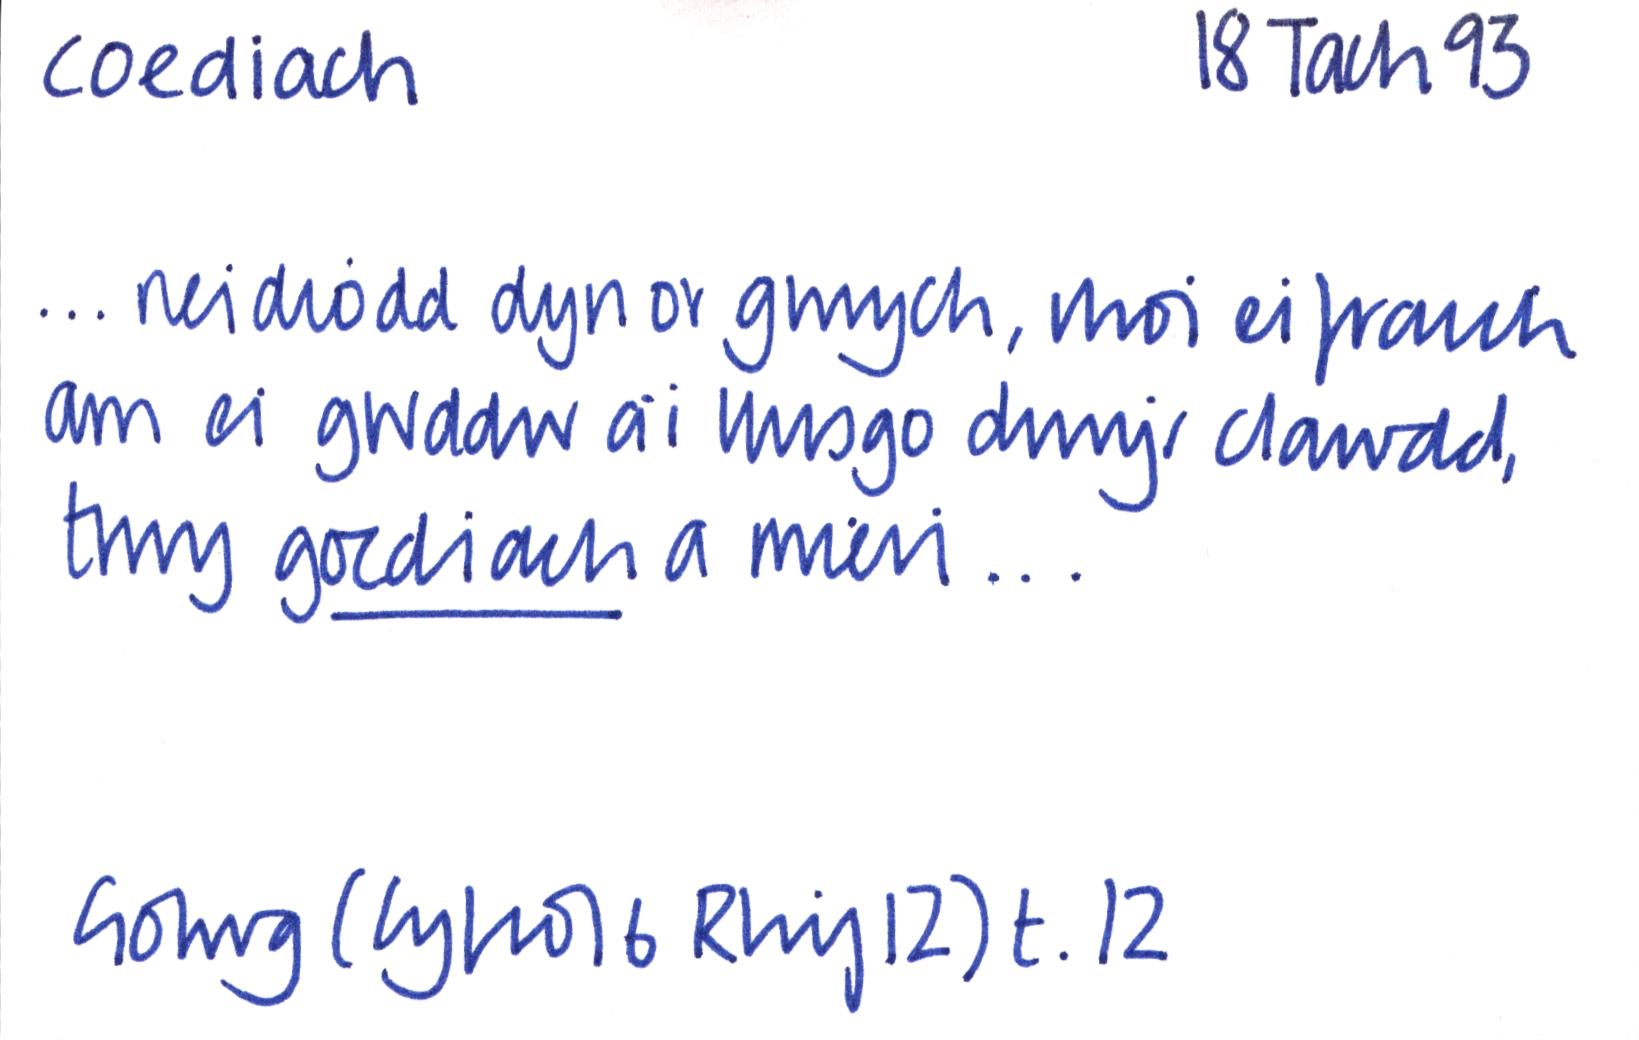 coediach 18 Tach 93
... neidiodd dyn or gwrych, rhoi ei fraich
am ei gwddw a'i llusgo drwy'r clawdd,
trwy goediach a mieri ...
Golwg (Cyfrol 6 Rhif 12) t. 12